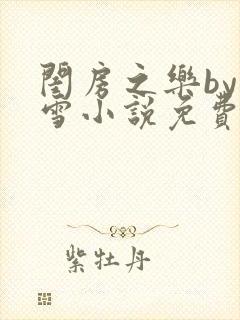 閨房之樂by
雪小說免費
紫牡丹